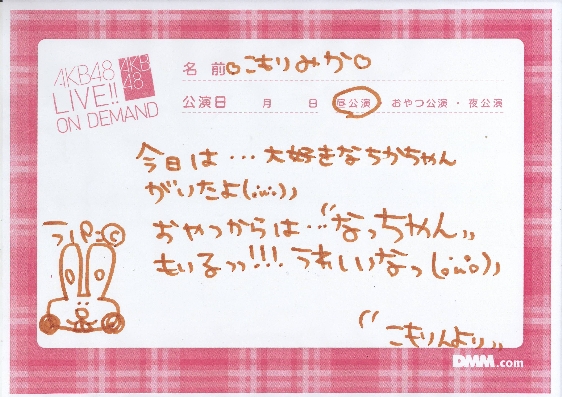 AKB48
LIVE!!
ON DEMAND
AKB
48
名前 こもりみか
公演日 月 日 昼公演 おやつ公演・夜公演
今日は…大好きなちかちゃん
がいたよ(。ï¨ï。)ノ
おやつからは…"なっちゃん"
もいるっっ!!!うれしいなっ(。ö。)ノ
"こもりんより"
DMM.com